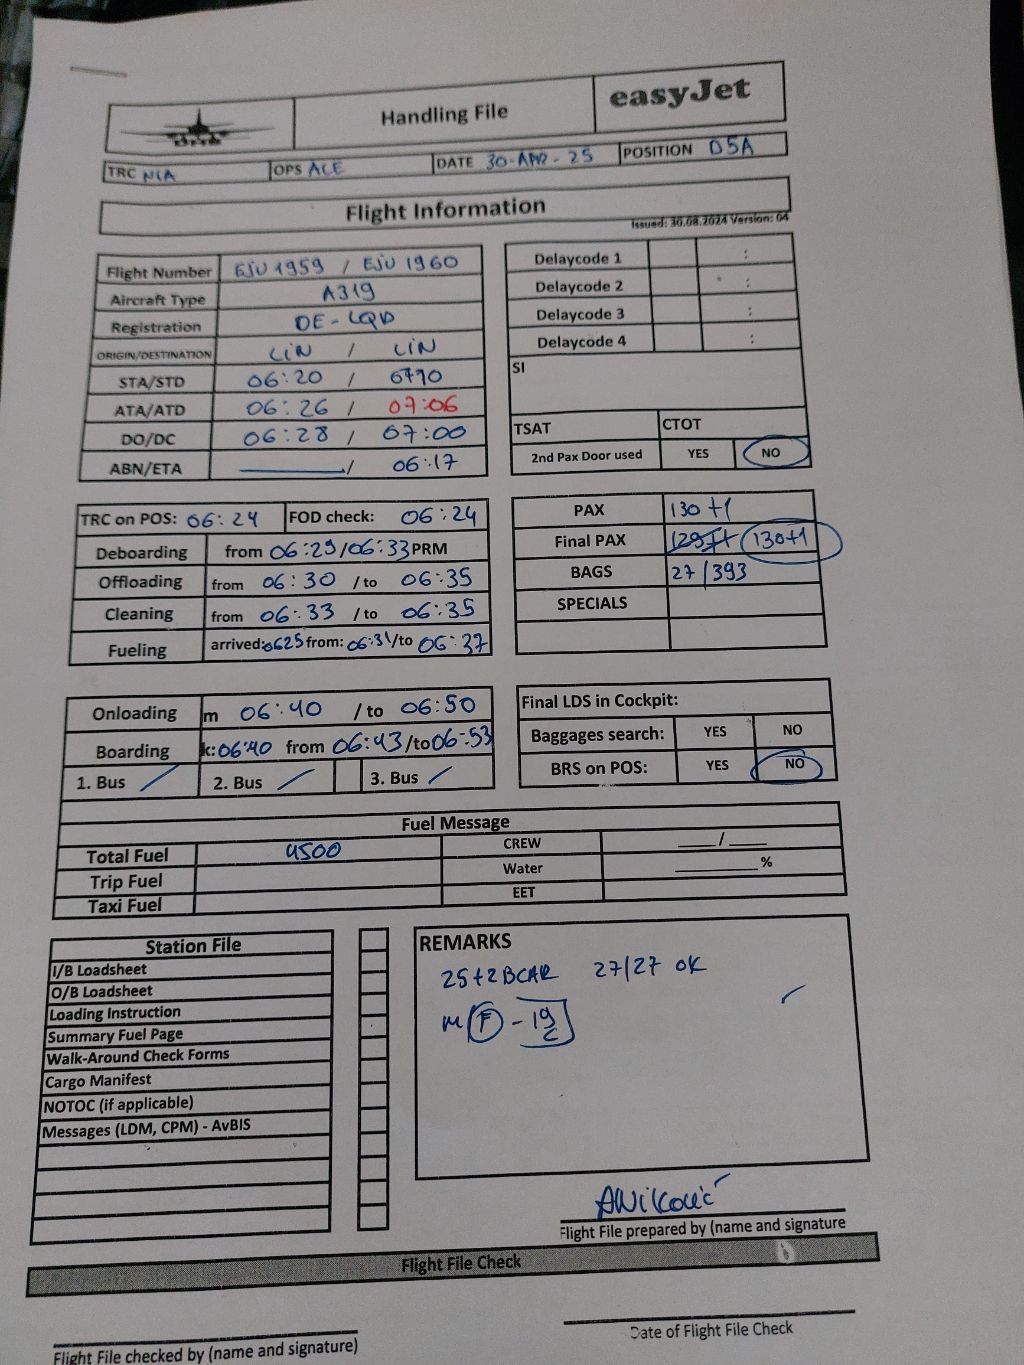 Handling File
easyJet
TRC NIA OPS ACE DATE 30-APR-25 POSITION D5A
Flight Information
Issued: 30.08.2024 Version: 04
Flight Number EJU 1959 / EJU 1960
Aircraft Type A319
Registration OE-LQD
ORIGIN/DESTINATION LIN / LIN
STA/STD 06:20 /
ATA/ATD 06:26 / 07:06
DO/DC 06:28 / 07:00
ABN/ETA / 06:17
Delaycode 1 :
Delaycode 2 :
Delaycode 3 :
Delaycode 4 :
SI
TSAT CTOT
2nd Pax Door used YES NO
TRC on POS: 06:24 FOD check: 06:24
Deboarding from 06:29/06:33 PRM
Offloading from 06:30 / to 06:35
Cleaning from 06:33 / to 06:35
Fueling arrived: 0625 from: 06:31/to 06:37
PAX 130+1
Final PAX 129+1 130+1
BAGS 27/393
SPECIALS
Onloading m 06:40 / to 06:50
Boarding k: 06:40 from 06:43/to 06:53
1. Bus / 2. Bus / 3. Bus /
Final LDS in Cockpit:
Baggages search: YES NO
BRS on POS: YES NO
Fuel Message
Total Fuel 4500 CREW ___/___
Trip Fuel Water ______%
Taxi Fuel EET
Station File
I/B Loadsheet
O/B Loadsheet
Loading Instruction
Summary Fuel Page
Walk-Around Check Forms
Cargo Manifest
NOTOC (if applicable)
Messages (LDM, CPM) - AvBIS
REMARKS
25+2BCAR 27/27 OK
M F - 19 C
Flight File prepared by (name and signature
Flight File Check
Flight File checked by (name and signature)
Date of Flight File Check